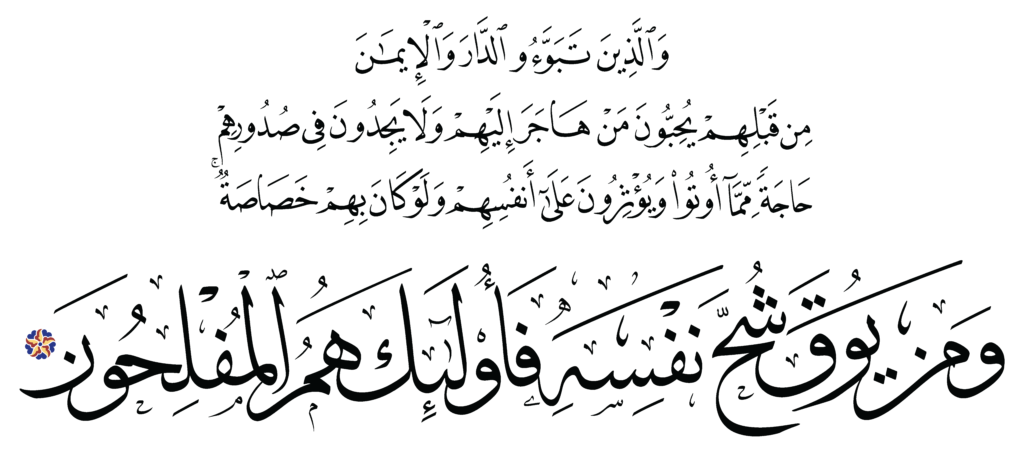 وَٱلَّذِينَ تَبَوَّءُو ٱلدَّارَ وَٱلْإِيمَٰنَ
مِن قَبْلِهِمْ يُحِبُّونَ مَنْ هَاجَرَ إِلَيْهِمْ وَلَا يَجِدُونَ فِى صُدُورِهِمْ
حَاجَةً مِّمَّآ أُوتُوا۟ وَيُؤْثِرُونَ عَلَىٰٓ أَنفُسِهِمْ وَلَوْ كَانَ بِهِمْ خَصَاصَةٌ ۚ
وَمَن يُوقَ شُحَّ نَفْسِهِۦ فَأُو۟لَٰٓئِكَ هُمُ ٱلْمُفْلِحُونَ